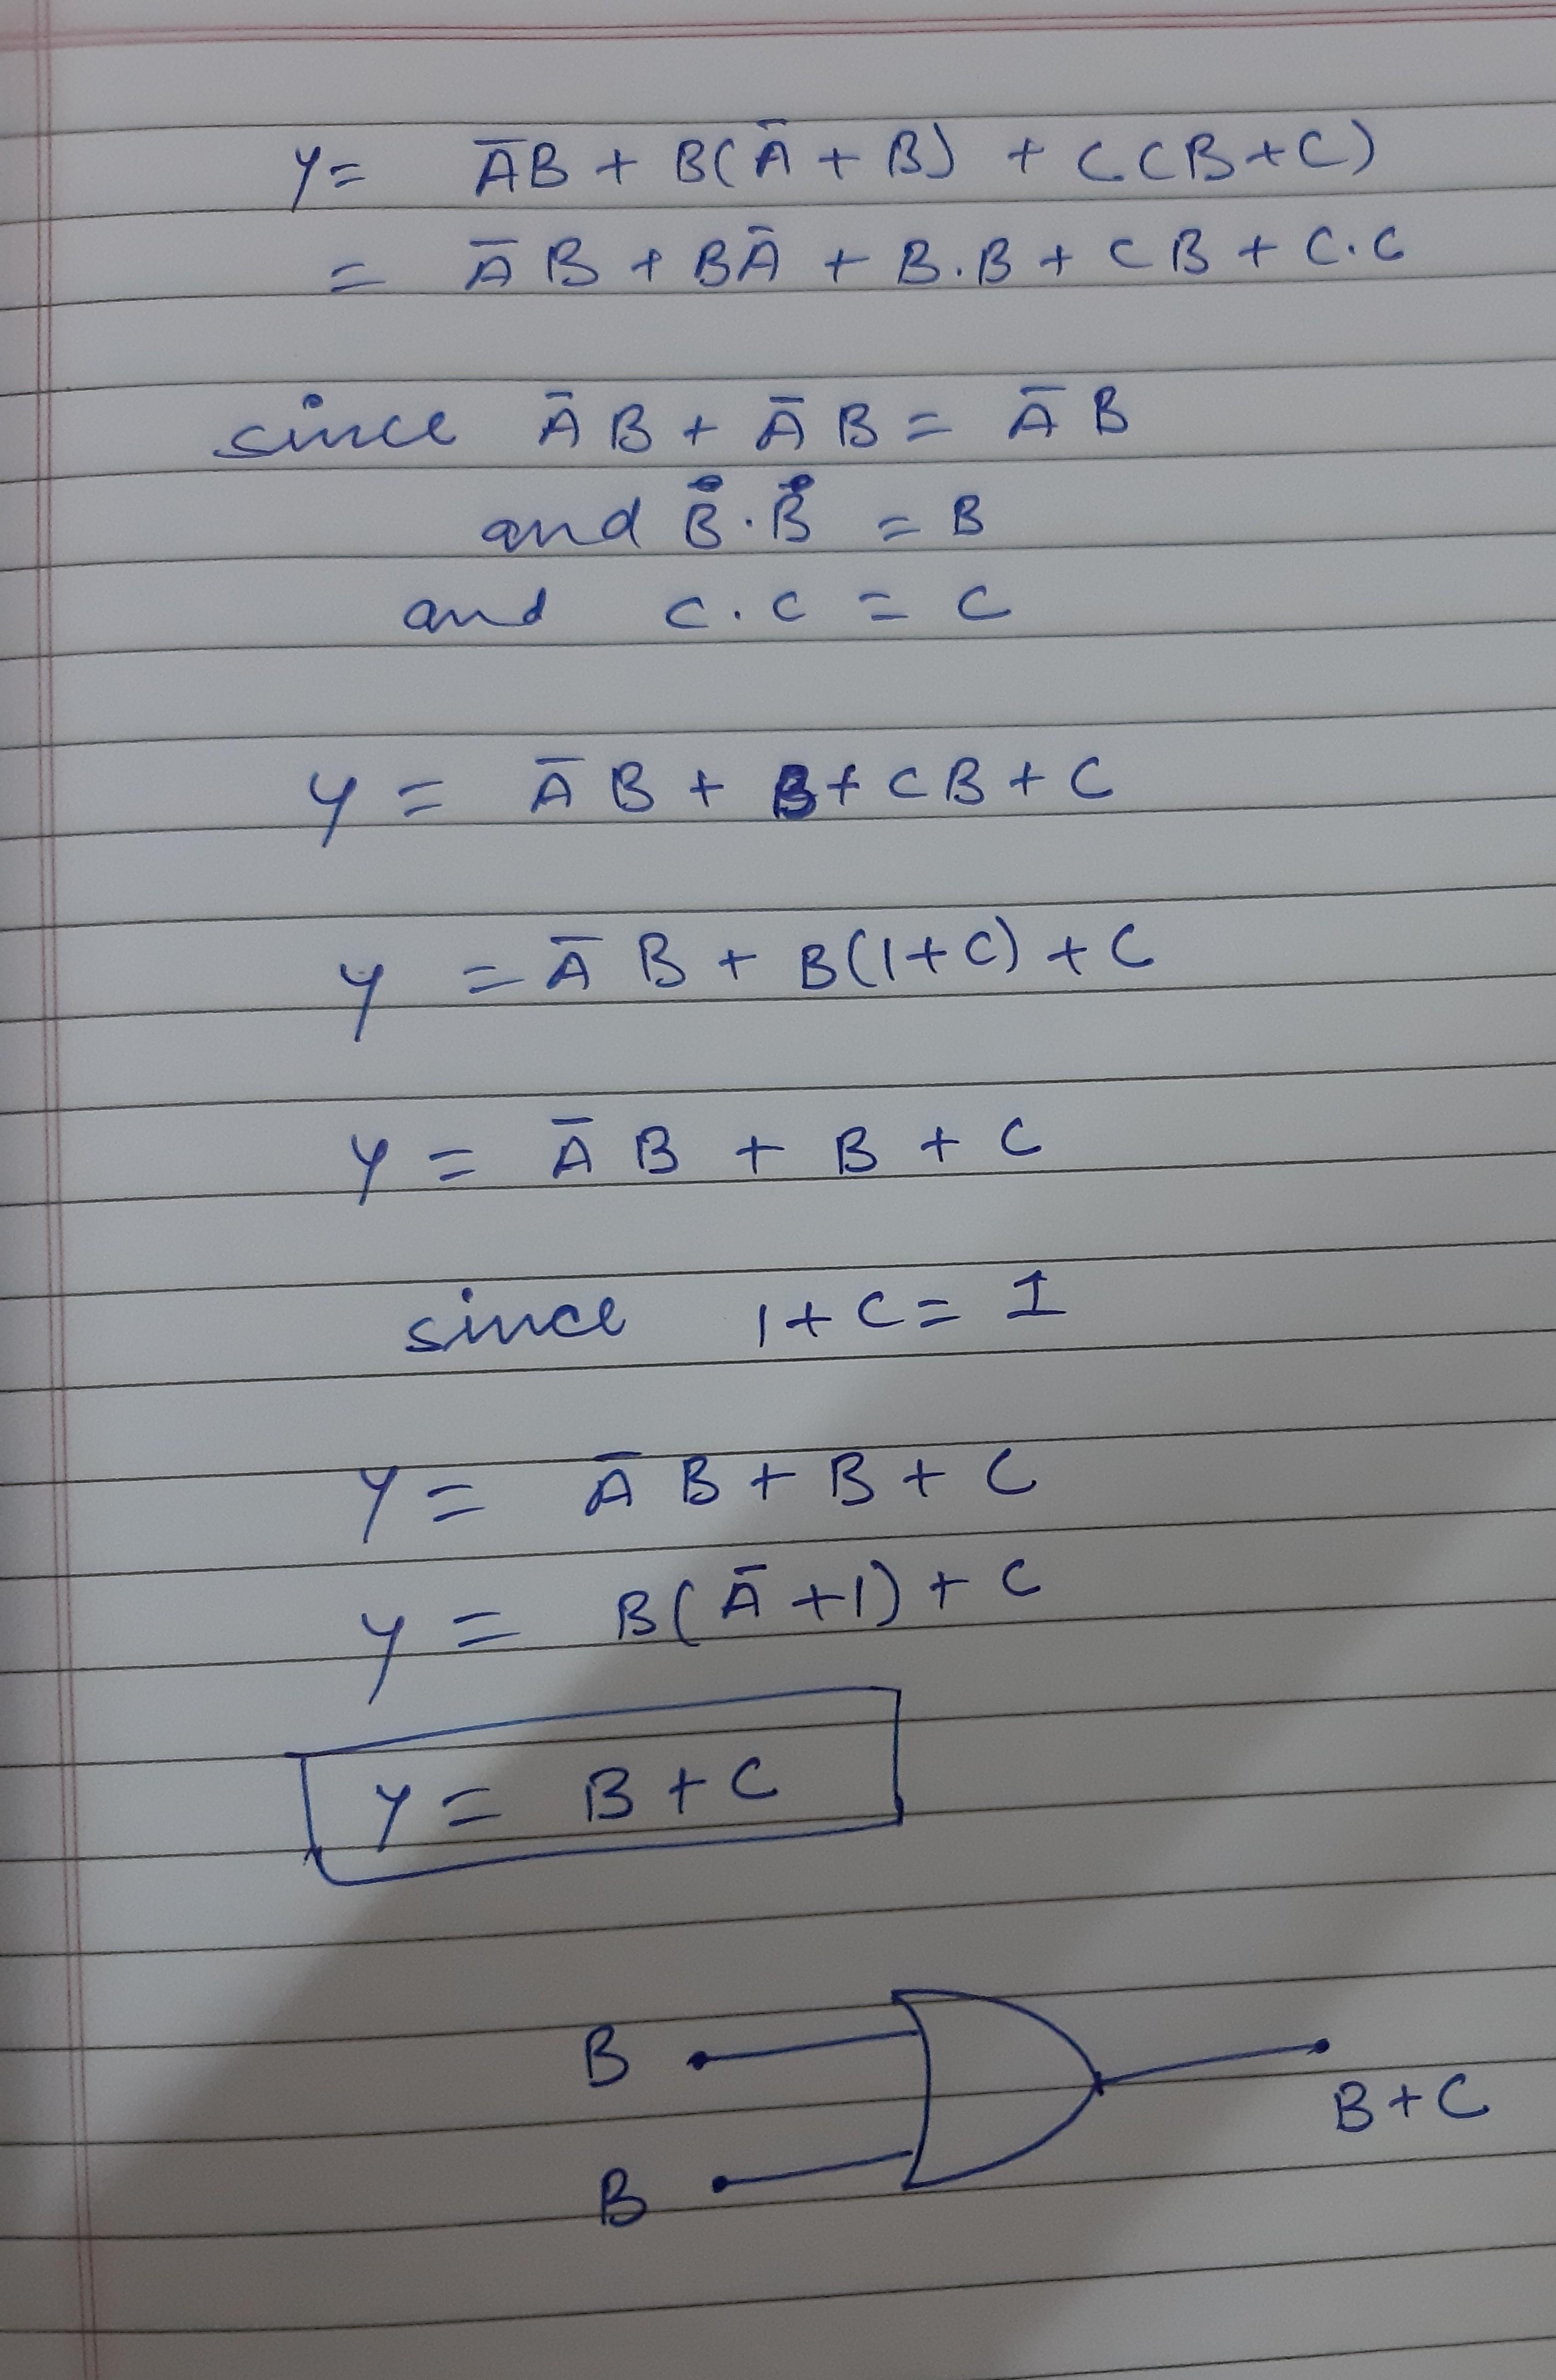 Y = ĀB + B(Ā + B) + C(B+C)
= ĀB + BĀ + B.B + CB + C.C
since ĀB + ĀB = ĀB
and B.B = B
and C.C = C
Y = ĀB + B + CB + C
Y = ĀB + B(1+C) + C
Y = ĀB + B + C
since 1+C = 1
Y = ĀB + B + C
Y = B(Ā+1) + C
Y = B + C
B
B+C
B